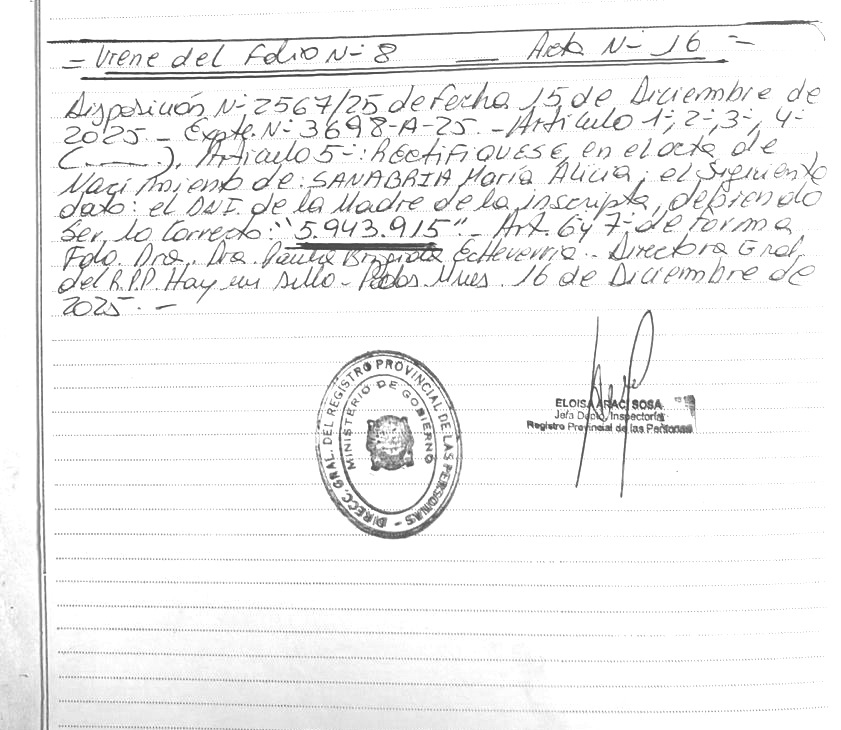 = Viene del Folio Nº 8 — Acta Nº 16 =
Disposición Nº 2567/25 de fecha 15 de Diciembre de
2025.- Expte. Nº 3698-A-25.- Artículo 1º, 2º, 3º, 4º
(......). Artículo 5º: RECTIFIQUESE en el acta de
Nacimiento de: SANABRIA María Alicia, el siguiente
dato: el DNI. de la Madre de la inscripta, debiendo
ser lo correcto: "5.943.915".- Art. 6 y 7º de forma
Fdo. Dra. Dra. Paula Brigida Echeverria.- Directora Gral.
del R.P.P. Hay un sello.- Pdas. Mnes. 16 de Diciembre de
2025.-
DIRECC. GRAL. DEL REGISTRO PROVINCIAL DE LAS PERSONAS -
MINISTERIO DE GOBIERNO
ELOISA ARACI SOSA
Jefa Dpto. Inspectoría
Registro Provincial de las Personas